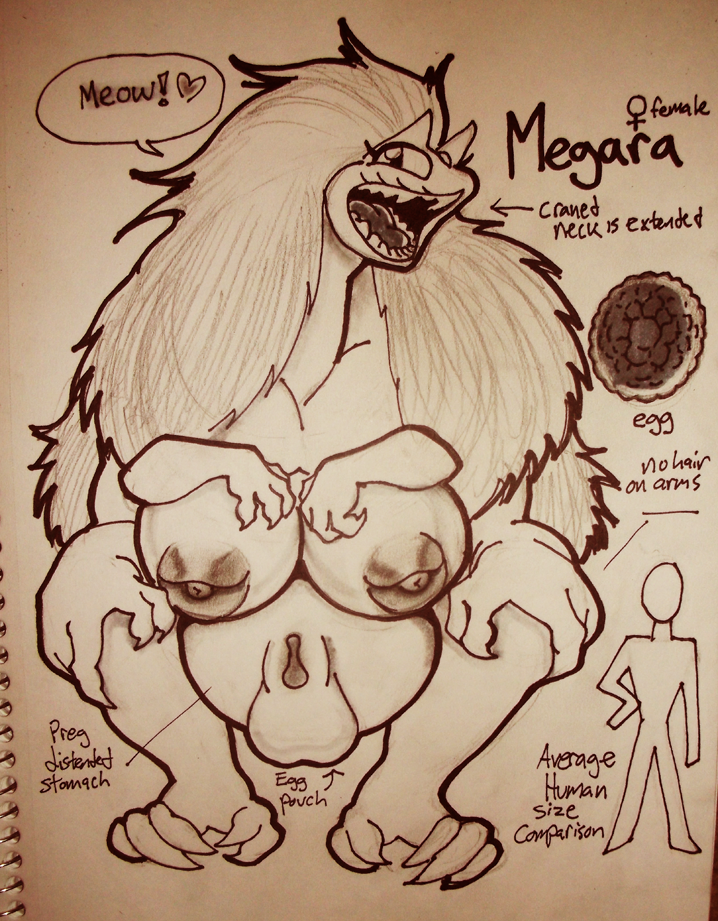 Meow! ♡
♀ female
Megara
← Craned
neck is extended
egg
no hair
on arms
Preg
distended
stomach
Egg
pouch
Average
Human
size
Comparison